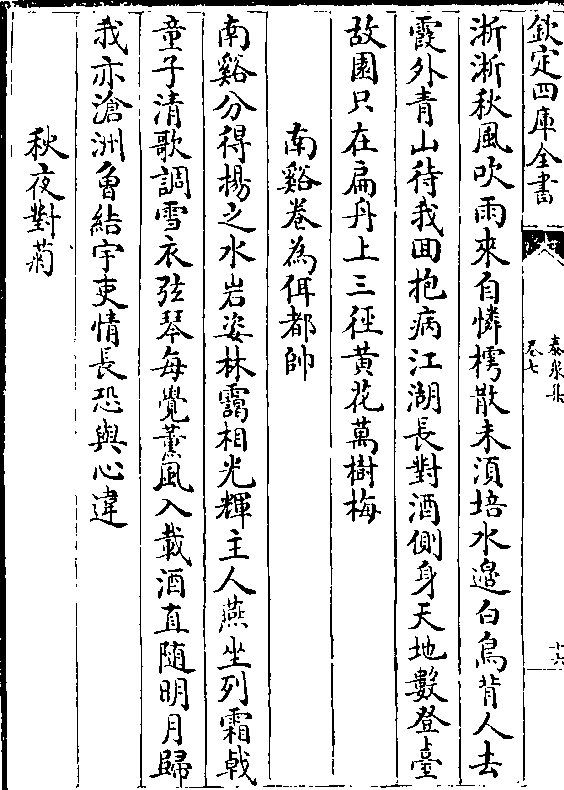 欽定四庫全書
泰泉集
卷七
十六
淅淅秋風吹雨來自憐樗散未須培水邉白鳥背人去
霞外青山待我回抱病江湖長對酒側身天地數登臺
故園只在扁舟上三徑黄花萬樹梅
南谿卷為佴都帥
南谿分得楊之水岩姿林靄相光輝主人燕坐列霜㦸
童子清歌調雪衣弦琴每覺薰風入載酒直随明月歸
我亦滄洲曾結宇吏情長恐與心違
秋夜對菊